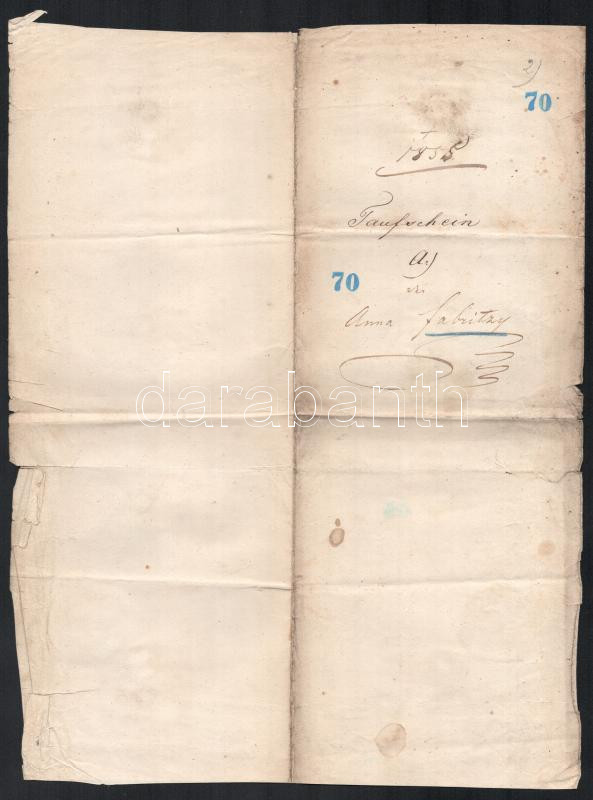 2)
70
1855
Taufschein
A.)
70
Anna Fabritzy
darabanth